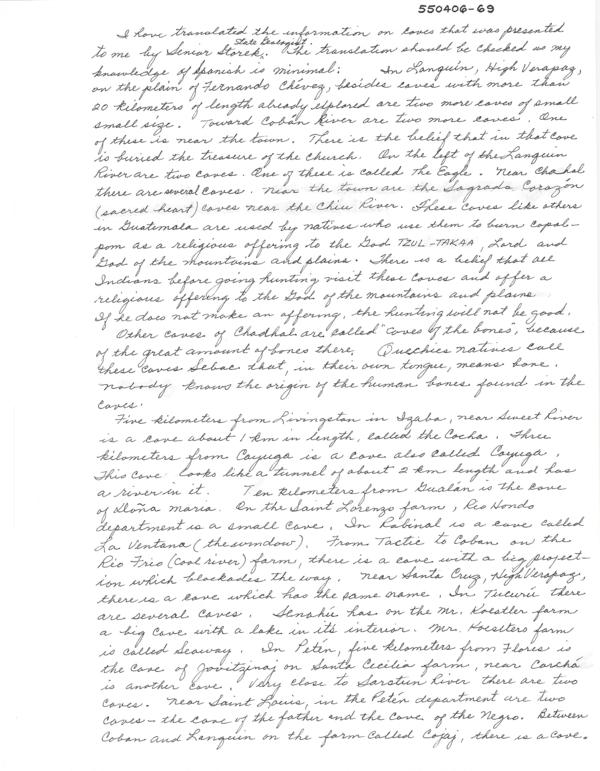 550406-69
I have translated the information on caves that was presented
State Geologist.
to me by Senior Storek. The translation should be checked as my
knowledge of Spanish is minimal: In Languin, High Verapaz,
on the plain of Fernando Chévez, besides caves with more than
20 kilometers of length already explored are two more caves of small
small size. Toward Cobán River are two more caves. One
of these is near the town. There is the belief that in that cave
is buried the treasure of the Church. On the left of the Languin
River are two caves. One of these is called The Eagle. Near Chahal
there are several caves. Near the town are the Sagrada Corazón
(sacred heart) caves near the Chiu River. These caves like others
in Guatemala are used by natives who use them to burn copal-
pom as a religious offering to the God TZUL-TAKAA, Lord and
God of the mountains and plains. There is a belief that all
Indians before going hunting visit these caves and offer a
religious offering to the God of the mountains and plains
If he does not make an offering, the hunting will not be good.
Other caves of Chadhal are called "coves of the bones", because
of the great amount of bones there. Quecchies natives call
these caves Sebac that, in their own tongue, means bone.
Nobody knows the origin of the human bones found in the
caves.
Five kilometers from Livingston in Izaba, near Sweet River
is a cave about 1 km in length, called the Cocha. Three
kilometers from Cayuga is a cave also called Cayuga.
This cave looks like a tunnel of about 2 km length and has
a river in it. Ten kilometers from Gualán is the cave
of Doña maria. On the Saint Lorenzo farm, Rio Hondo
department is a small cave. In Rabinal is a cave called
La Ventana (the window). From Tactic to Coban on the
Rio Frio (cool river) farm, there is a cave with a big project-
ion which blockades the way. Near Santa Cruz, High Verapaz,
there is a cave which has the same name. In Tucurú there
are several caves. Senahú has on the Mr. Koestler farm
a big cave with a lake in its interior. Mr. Koestlers farm
is called Seaway. In Petén, five kilometers from Flores is
the cave of Jovitzinaj on Santa Cecilia farm, near Carchá
is another cave. Very close to Sarstun River there are two
caves. Near Saint Louis, in the Petén department are two
caves - the cave of the father and the Cave of the Negro. Between
Coban and Lanquin on the farm called Cojaj, there is a cave.